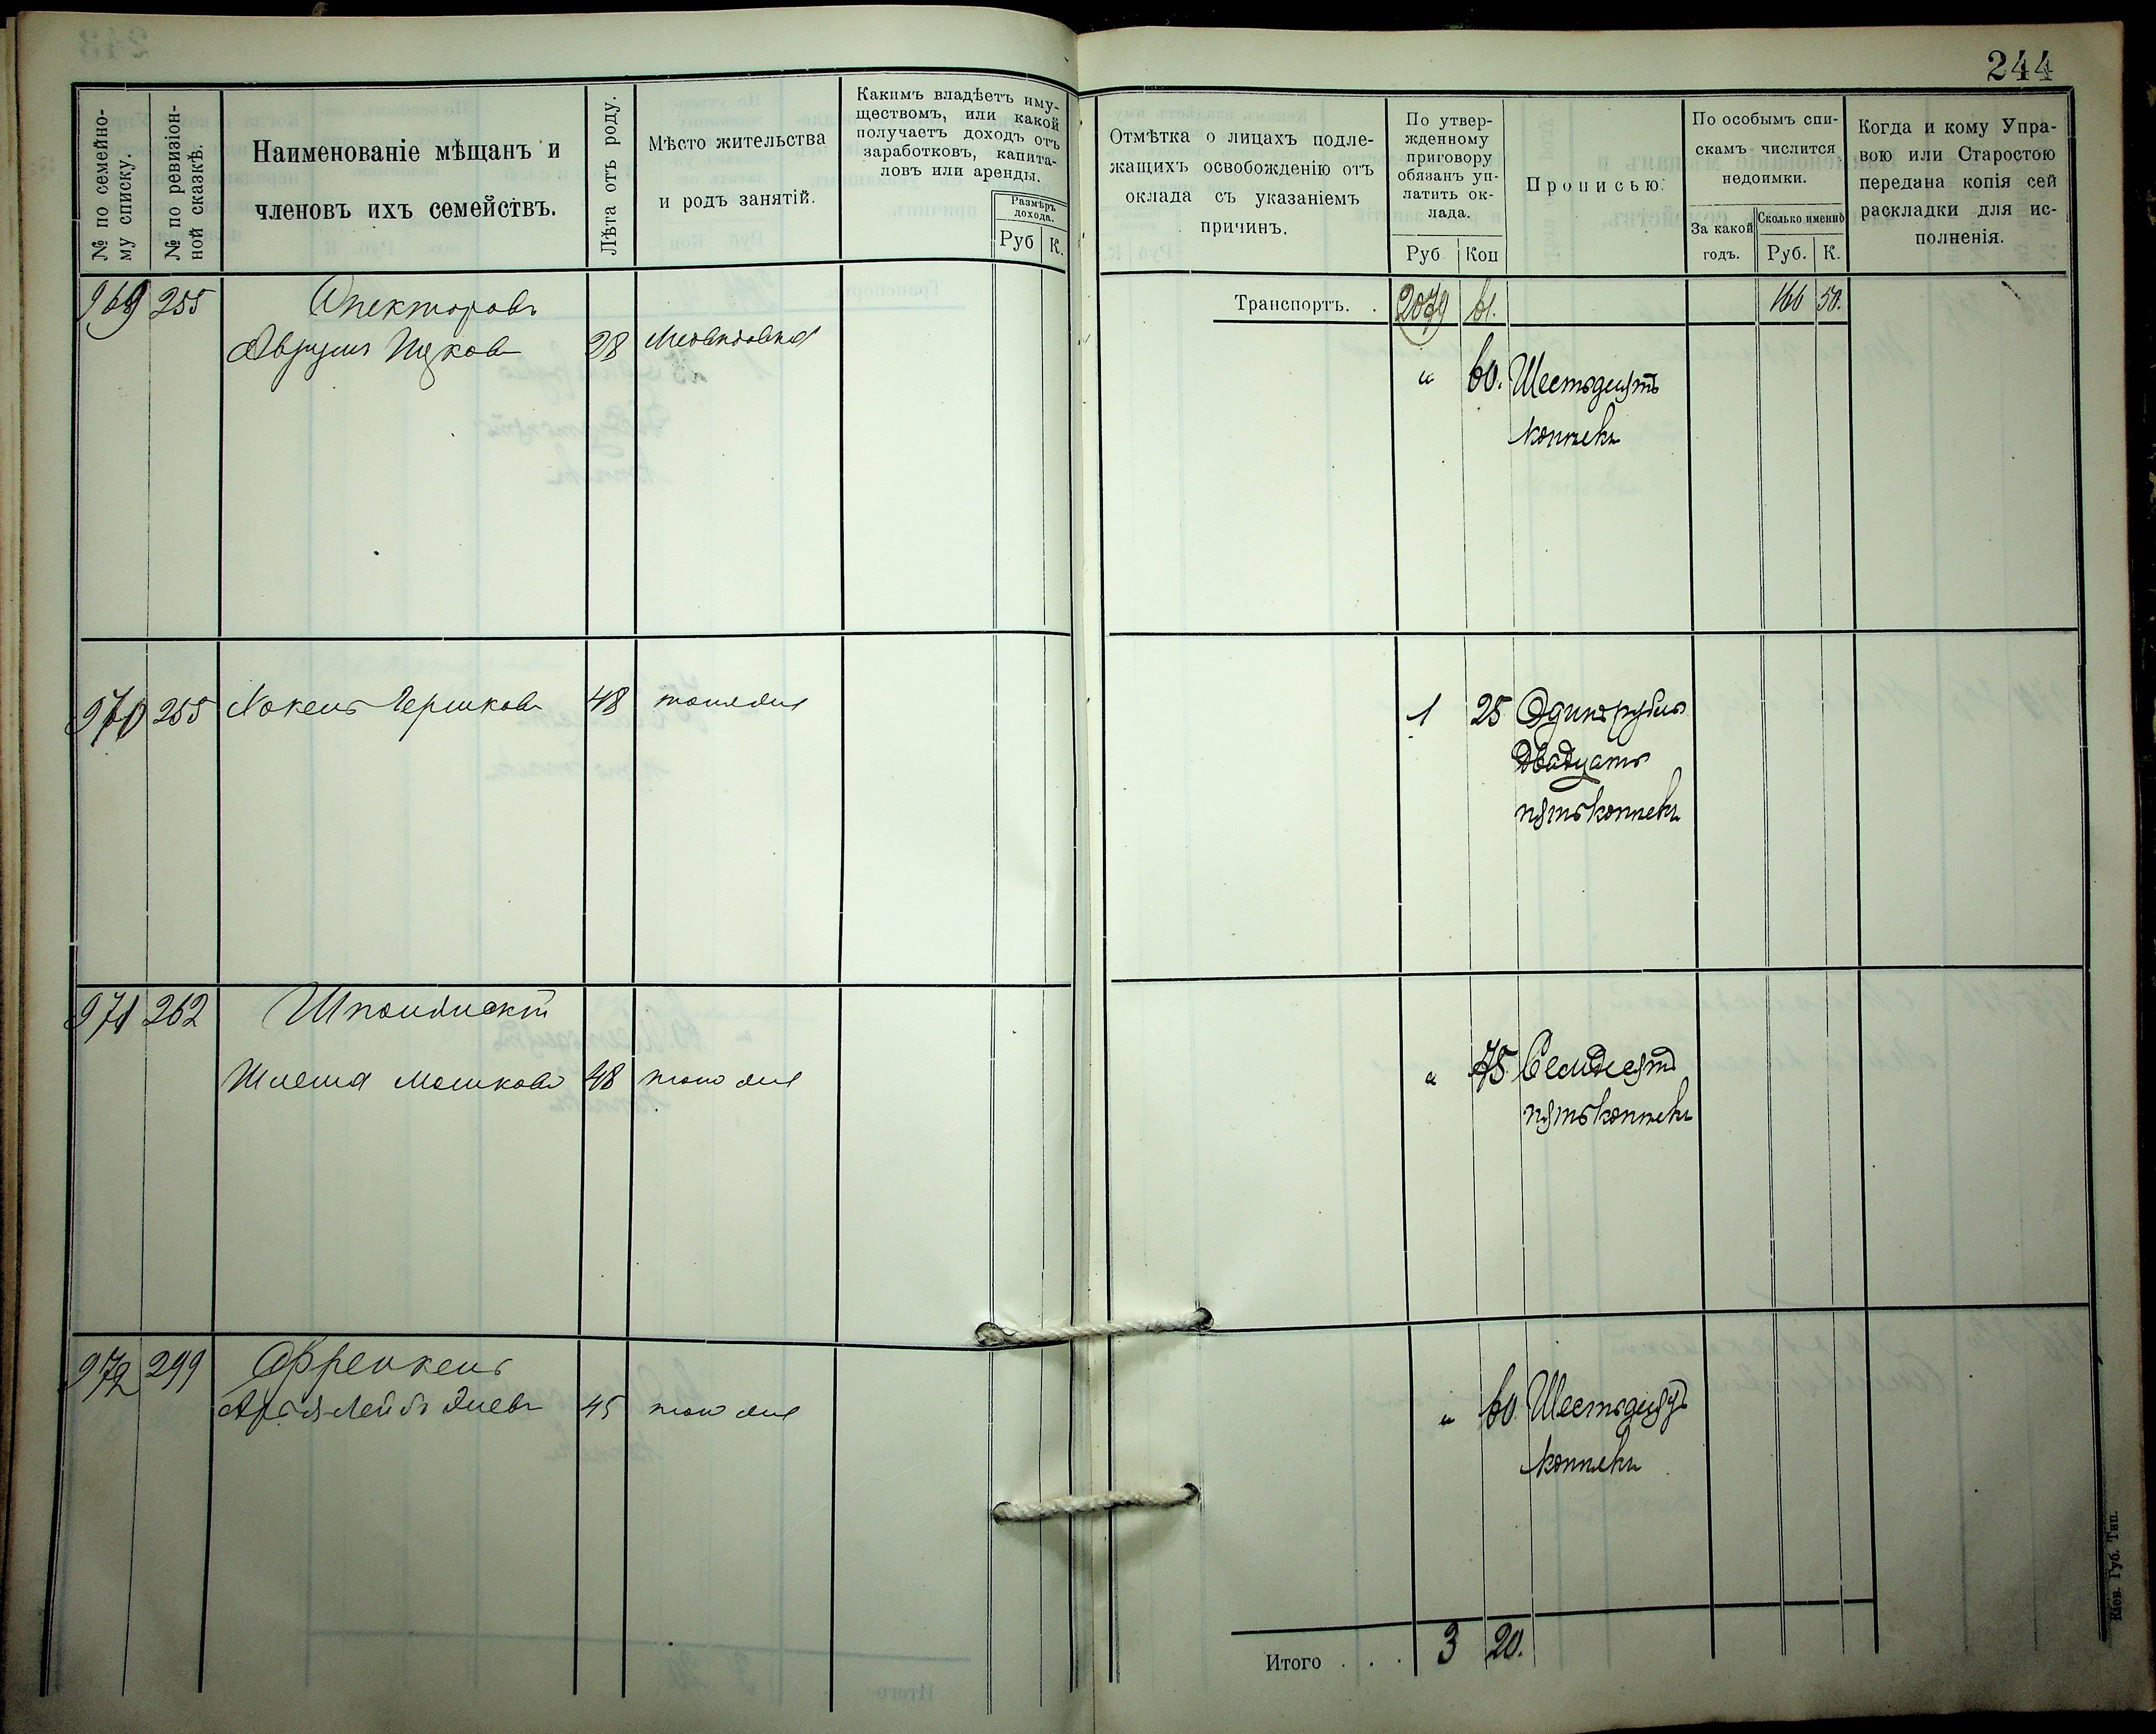 244
№ по семейно-
му списку.
№ по ревизіон-
ной сказкѣ.
Наименованіе мѣщанъ и
членовъ ихъ семействъ.
Лѣта отъ роду.
Мѣсто жительства
и родъ занятій.
Какимъ владѣетъ иму-
ществомъ, или какой
получаетъ доходъ отъ
заработковъ, капита-
ловъ или аренды.
Размѣръ
дохода.
Руб К.
Отмѣтка о лицахъ подле-
жащихъ освобожденію отъ
оклада съ указаніемъ
причинъ.
По утвер-
жденному
приговору
обязанъ уп-
латить ок-
лада.
Руб Коп
Прописью.
По особымъ спи-
скамъ числится
недоимки.
За какой
годъ.
Сколько именно
Руб. К.
Когда и кому Упра-
вою или Старостою
передана копія сей
раскладки для ис-
полненія.
Транспортъ. . 2079 61. 166 50.
969 255 Спекторовъ
Аврумъ Ицковъ 28
„ 60. Шестьдесятъ
копѣекъ
970 255 Хокель Гершковъ 48 тоже
1 25 Одинъ рубль
двадцать
пять копѣекъ
971 262
Шлема Мошковъ 48 тоже
„ 75 Семьдесятъ
пять копѣекъ
972 299 Френкель
Арья Лейбъ 45 тоже
„ 60 Шестьдесятъ
копѣекъ
Итого . . . 3 20.
Кіев. Губ. Тип.